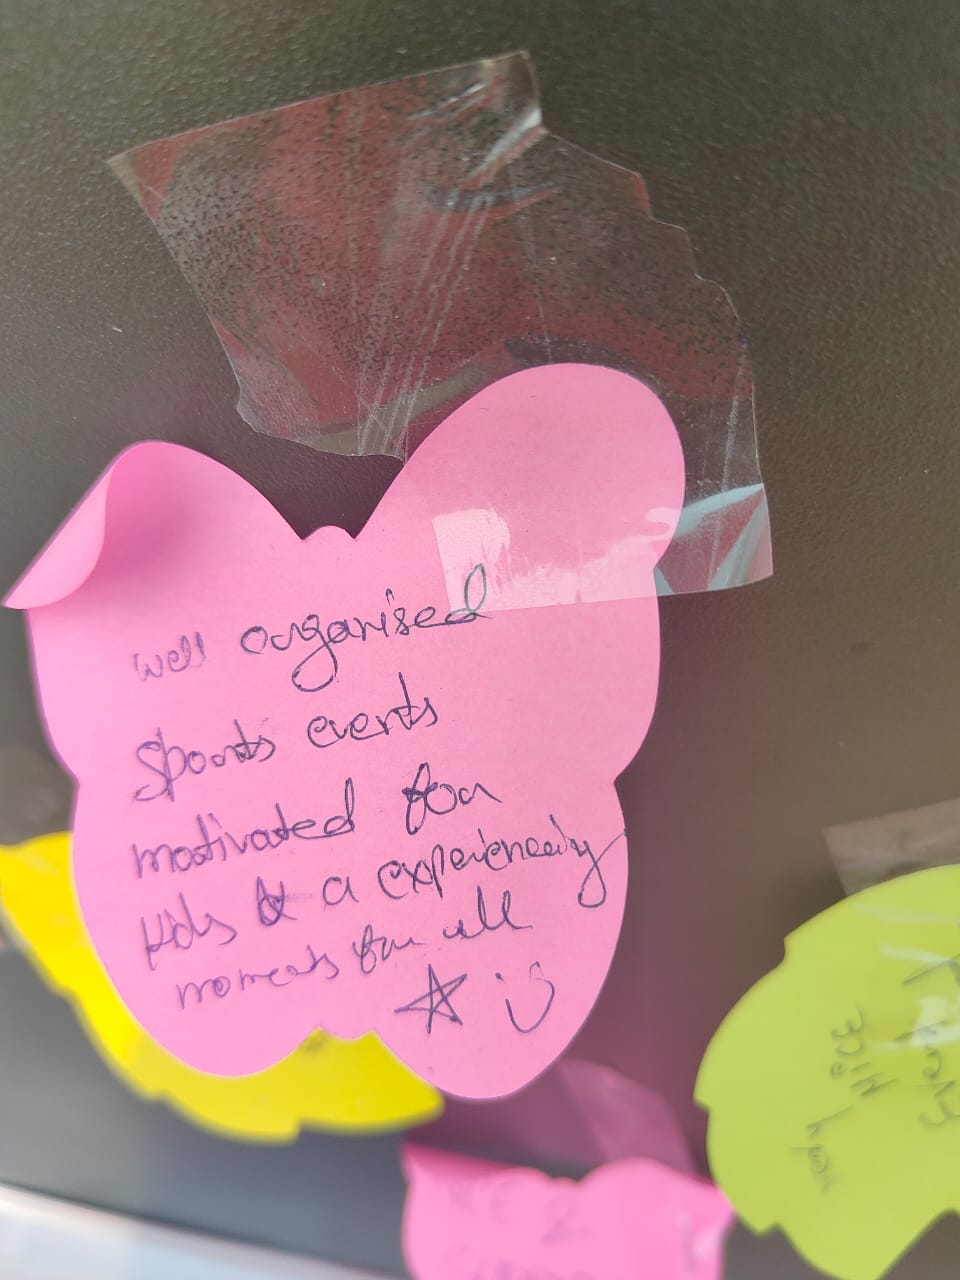 well organised
sports events
motivated for
kids & a experiencing
moments for all
very NiCE